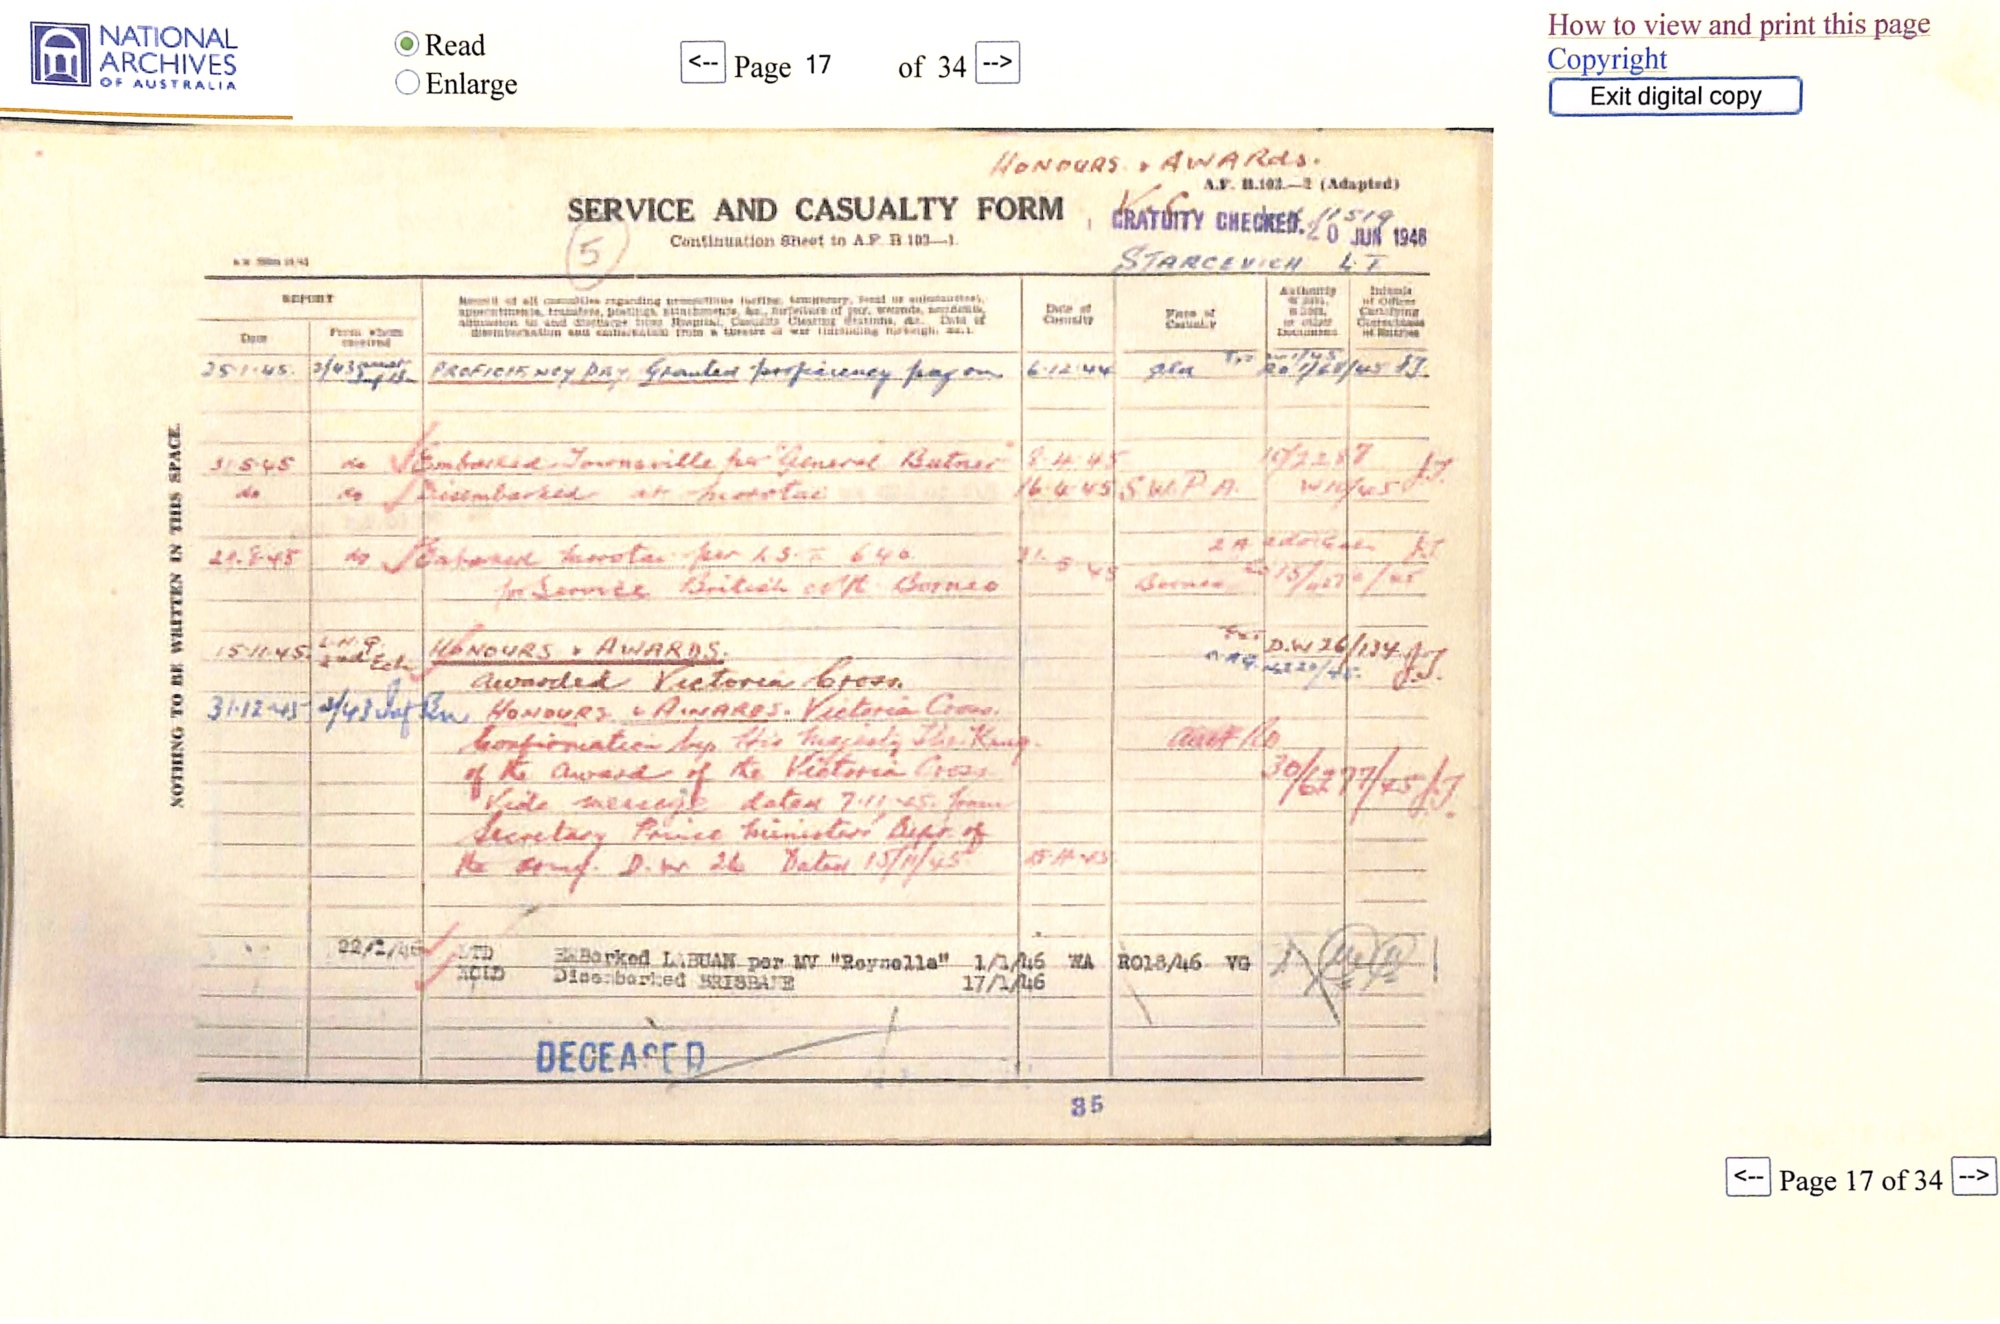 NATIONAL
ARCHIVES
OF AUSTRALIA
Read
Enlarge
<-- Page 17 of 34 -->
How to view and print this page
Copyright
Exit digital copy
HONOURS & AWARDS.
A.F. B.103.—2 (Adapted)
V.C.
SERVICE AND CASUALTY FORM
GRATUITY CHECKED.
20 JUN 1946
Continuation Sheet to A.F. B 103—1.
5
STARCEVICH L T
NOTHING TO BE WRITTEN IN THIS SPACE.
REPORT
Date
From whom received
Record of all casualties regarding promotions (acting, temporary, local or substantive), appointments, transfers, postings, attachments, &c., forfeiture of pay, wounds, accidents, admission to and discharge from Hospital, Casualty Clearing Stations, &c. Date of disembarkation and embarkation from a theatre of war (including furlough, &c.).
Date of Casualty
Place of Casualty
Authority
or other Documents
Initials of Officer Certifying Correctness of Entries
25.1.45. 2/43 PROFICIENCY PAY Granted proficiency pay on 6.12.44
31.5.45 do Embarked Townsville per "General Butner" 8.4.45
do do Disembarked at Morotai 16.4.45 S W P A.
29.8.45 do Morotai per L S T 640
for Service British Borneo Borneo
15.11.45. HONOURS & AWARDS. D.W 26/134
Awarded Victoria Cross.
31.12.45 2/43 Inf Bn HONOURS & AWARDS. Victoria Cross.
Confirmation by His Majesty The King
of the award of the Victoria Cross
Vide message dated 7.11.45. from 30/6277/45
Secretary Prime Ministers' Dept. of
the D.W 26 Dated 15/11/45
22/1/46 EMBarked LABUAN per MV "Reynella" 1/1/46 WA RO18/46 VG
Disembarked BRISBANE 17/1/46
DECEASED
35
<-- Page 17 of 34 -->